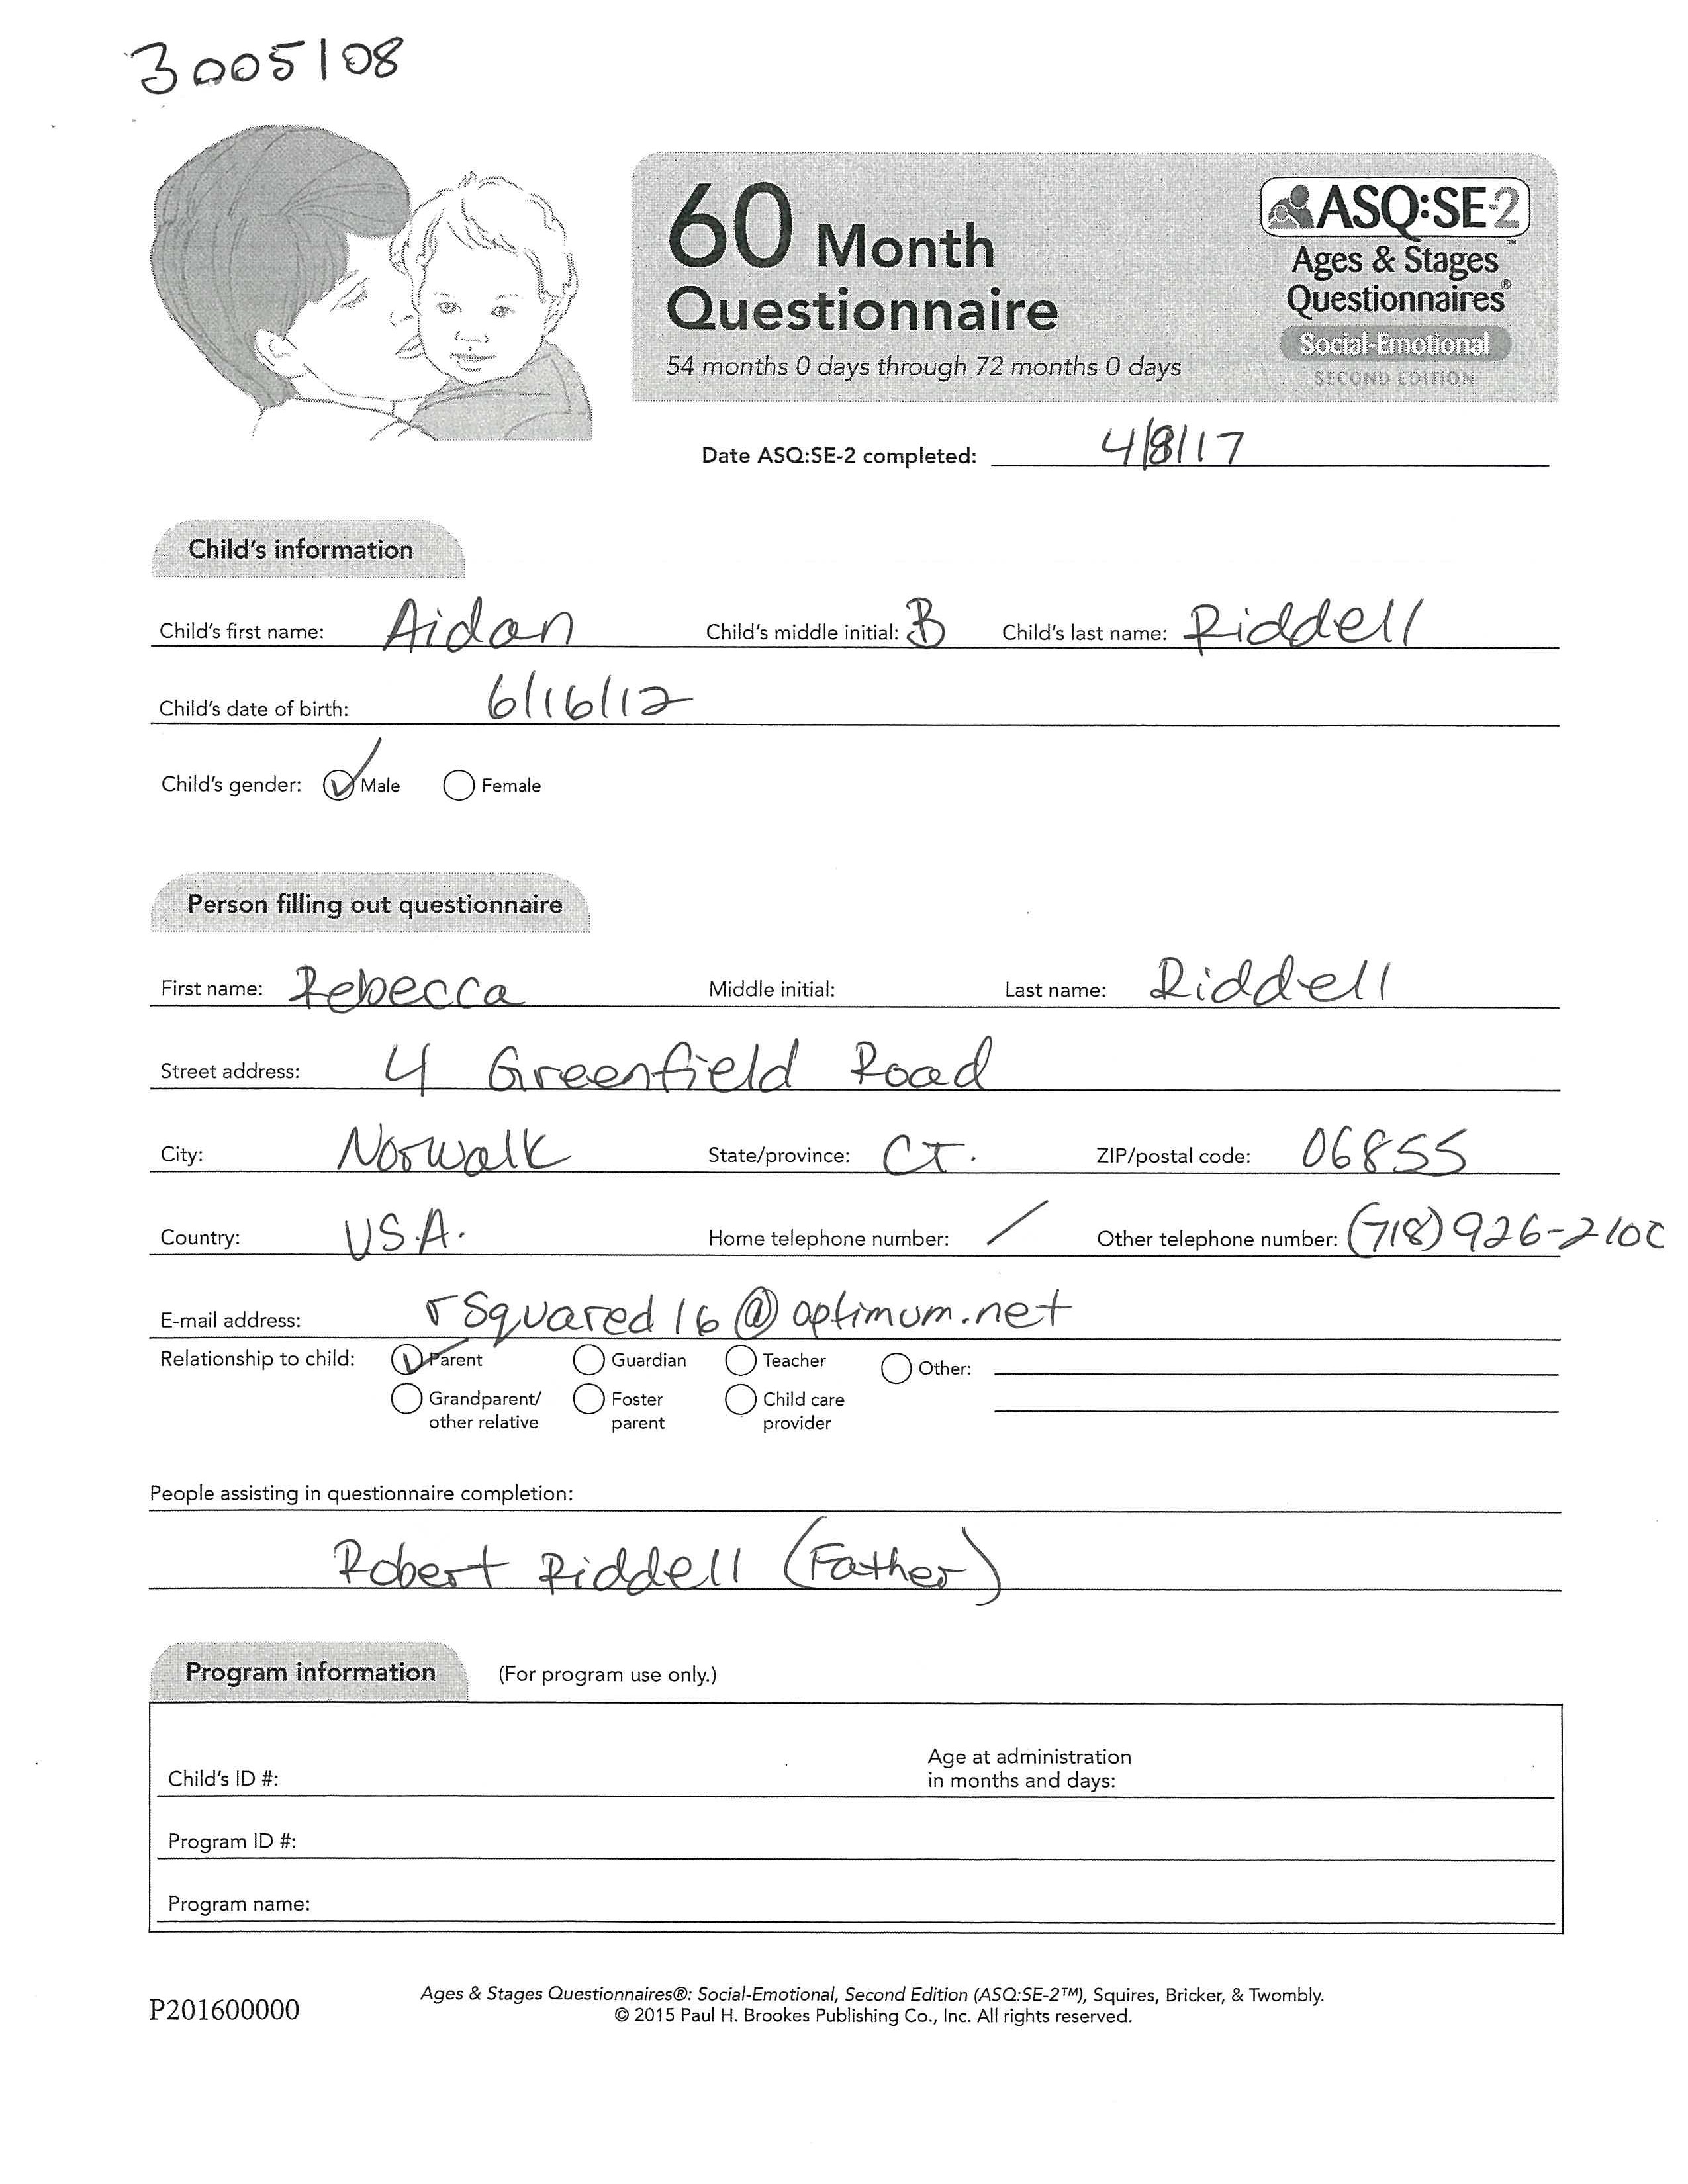 3005108
60 Month
Questionnaire
54 months 0 days through 72 months 0 days
ASQ:SE-2™
Ages & Stages
Questionnaires®
Social-Emotional
SECOND EDITION
Date ASQ:SE-2 completed: 4/8/17
Child's information
Child's first name: Aidan Child's middle initial: B Child's last name: Riddell
Child's date of birth: 6/16/12
Child's gender: Male Female
Person filling out questionnaire
First name: Rebecca Middle initial: Last name: Riddell
Street address: 4 Greenfield Road
City: Norwalk State/province: CT. ZIP/postal code: 06855
Country: USA. Home telephone number: / Other telephone number: (718) 926-210
E-mail address: rsquared16@optimum.net
Relationship to child: Parent Guardian Teacher Other:
Grandparent/ Foster Child care
other relative parent provider
People assisting in questionnaire completion:
Robert Riddell (Father)
Program information (For program use only.)
Age at administration
Child's ID #: in months and days:
Program ID #:
Program name:
P201600000
Ages & Stages Questionnaires®: Social-Emotional, Second Edition (ASQ:SE-2™), Squires, Bricker, & Twombly.
© 2015 Paul H. Brookes Publishing Co., Inc. All rights reserved.